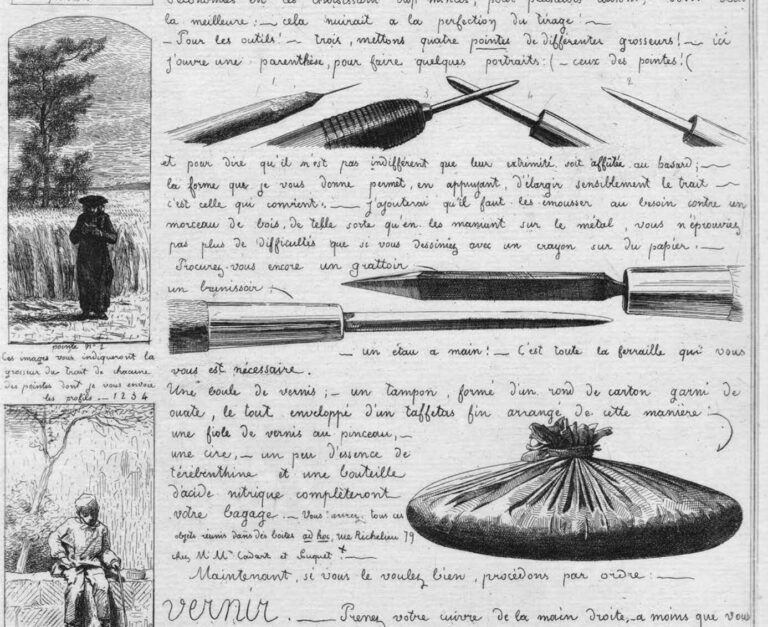 la meilleure: — cela nuirait a la perfection du tirage! —
— Pour les outils! — trois, mettons quatre pointes de différentes grosseurs! — ici
j'ouvre une parenthèse, pour faire quelques portraits: ( — ceux des pointes! (
1 3 4 2
et pour dire qu'il n'est pas indifférent que leur extrimité soit affûtée au hasard; —
la forme que je vous donne permet, en appuyant, d'élargir sensiblement le trait —
c'est celle qui convient. — J'ajouterai qu'il faut les émousser au besoin contre un
morceau de bois, de telle sorte qu'en les maniant sur le métal, vous n'éprouviez
pas plus de difficultés que si vous dessiniez avec un crayon sur du papier. —
Procurez-vous encore un grattoir
un brunissoir
— un étau a main! — C'est toute la ferraille qui vous
vous est nécessaire.
pointe No 1
Ces images vous indiqueront la
grosseur du trait de chacune
des pointes dont je vous envoie
les profils — 1 2 3 4
Une boule de vernis; — un tampon, formé d'un rond de carton garni de
ouate, le tout enveloppé d'un taffetas fin arrangé de cette manière:
une fiole de vernis au pinceau, —
une cire, — un peu d'essence de
térébenthine et une bouteille
d'acide nitrique complèteront
votre bagage. — Vous aurez tous ces
objets réunis dans des boites ad hoc, rue Richelieu 79
chez M Mrs Cadart et Luquet! —
Maintenant, si vous le voulez bien, procédons par ordre: —
vernir. — Prenez votre cuivre de la main droite, a moins que vous